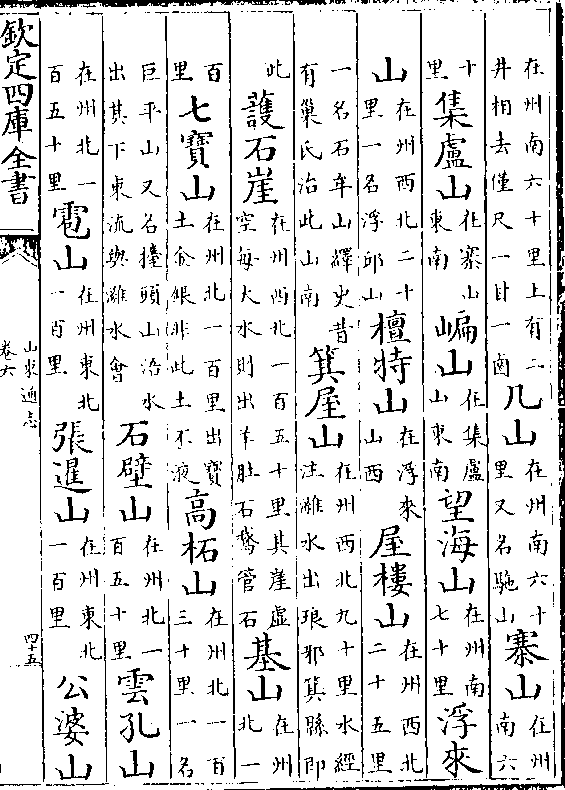 在州南六十里上有二井相去僅尺一甘一鹵几山在州南六十里又名駞山寨山在州南六
十里集盧山在寨山東南山在集盧山東南望海山在州南七十里浮來
山在州西北二十里一名浮邱山檀特山在浮來山西屋樓山在州西北二十五里
一名石牟山繹史昔有巢氏治此山南箕屋山在州西北九十里水經注濰水出琅邪箕縣即
此護石崖在州西北一百五十里其崖虛空每大水則出羊肚石鵞管石基山在州北一
百里七寶山在州北一百里出寶土金銀非此土不液高柘山在州北一百三十里一名
巨平山又名擡頭山浯水出其下東流與濰水會石壁山在州北一百五十里雲孔山
在州北一百五十里雹山在州東北一百里張暹山在州東北一百里公婆山
欽定四庫全書
山東通志
卷六
四十五